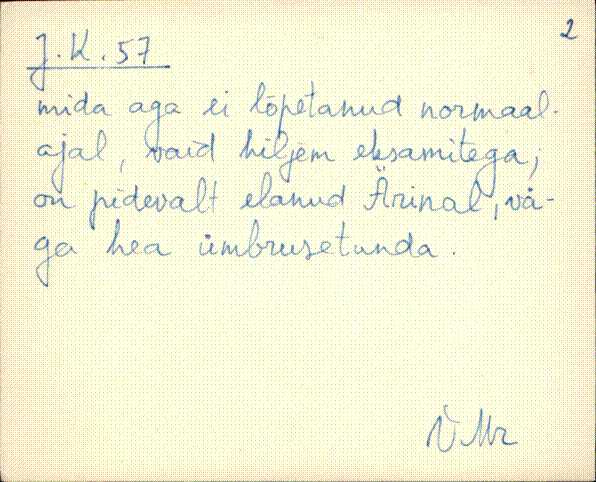 2
J.K. 57
mida aga ei lõpetanud normaal-
ajal, vaid hiljem eksamitega;
on pidevalt elanud Ärinal, vä-
ga hea ümbrusetunda.